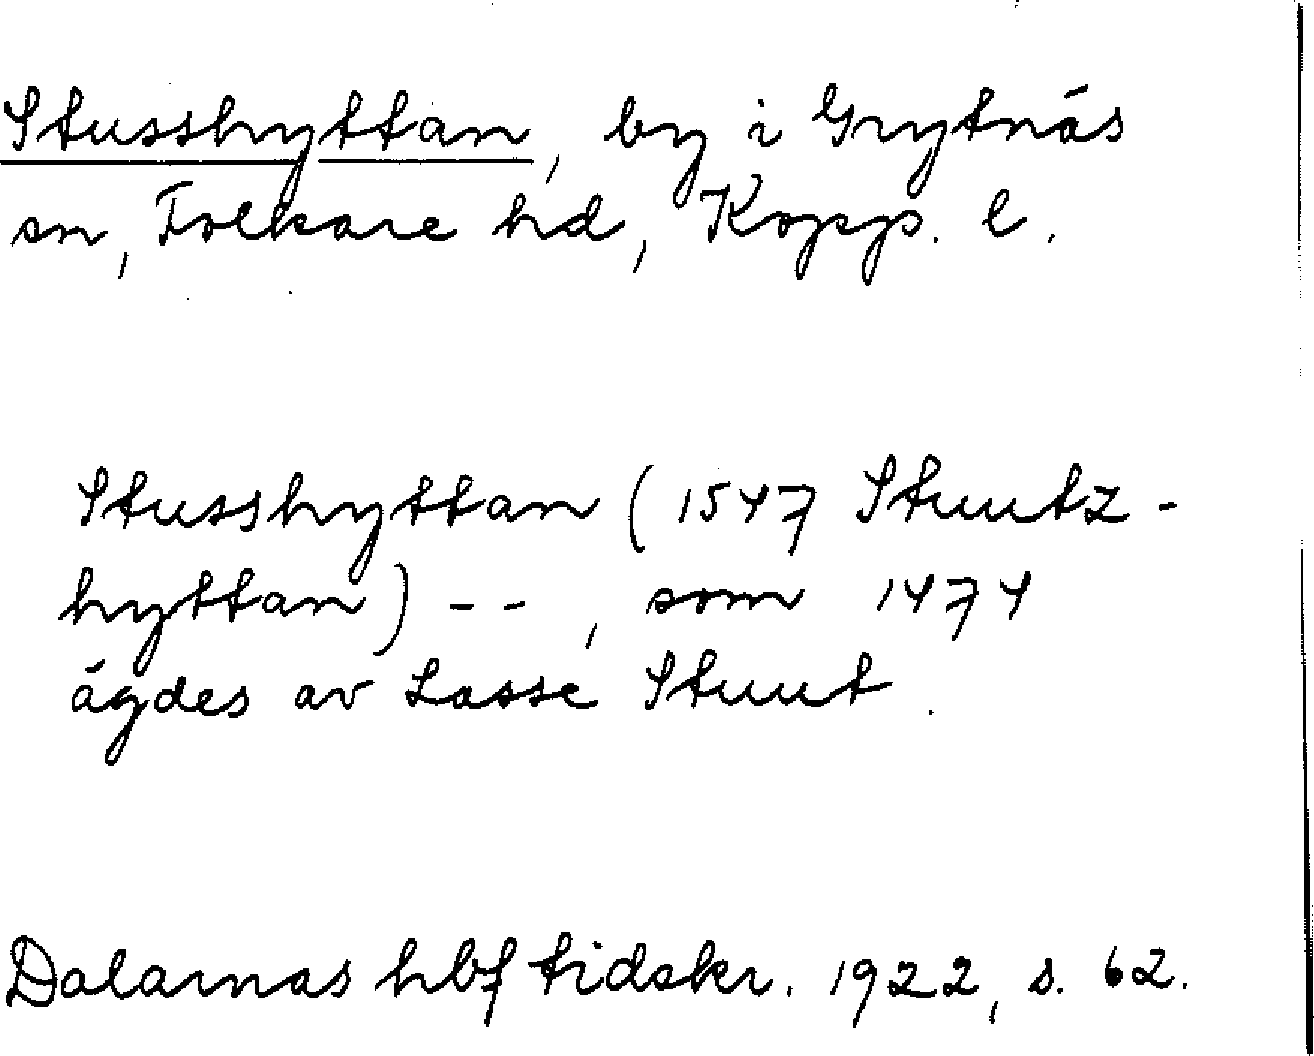 Stusshyttan, by i Grytnäs
sn, Folkare hd, Kopp. l.
Stusshyttan (1547 Stuutz-
hyttan) -- , som 1474
ägdes av Lasse Stuut.
Dalarnas hbf tidskr. 1922, s. 62.